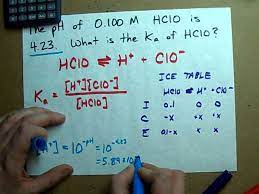 The pH of 0.100 M HClO is
4.23. What is the Ka of HClO?
HClO ⇌ H⁺ + ClO⁻
Ka = [H⁺][ClO⁻] / [HClO]
ICE TABLE
HClO ⇌ H⁺ + ClO⁻
I 0.1 0 0
C -x x x
E 0.1-x x x
[H⁺] = 10^-pH = 10^-4.23
= 5.89×10